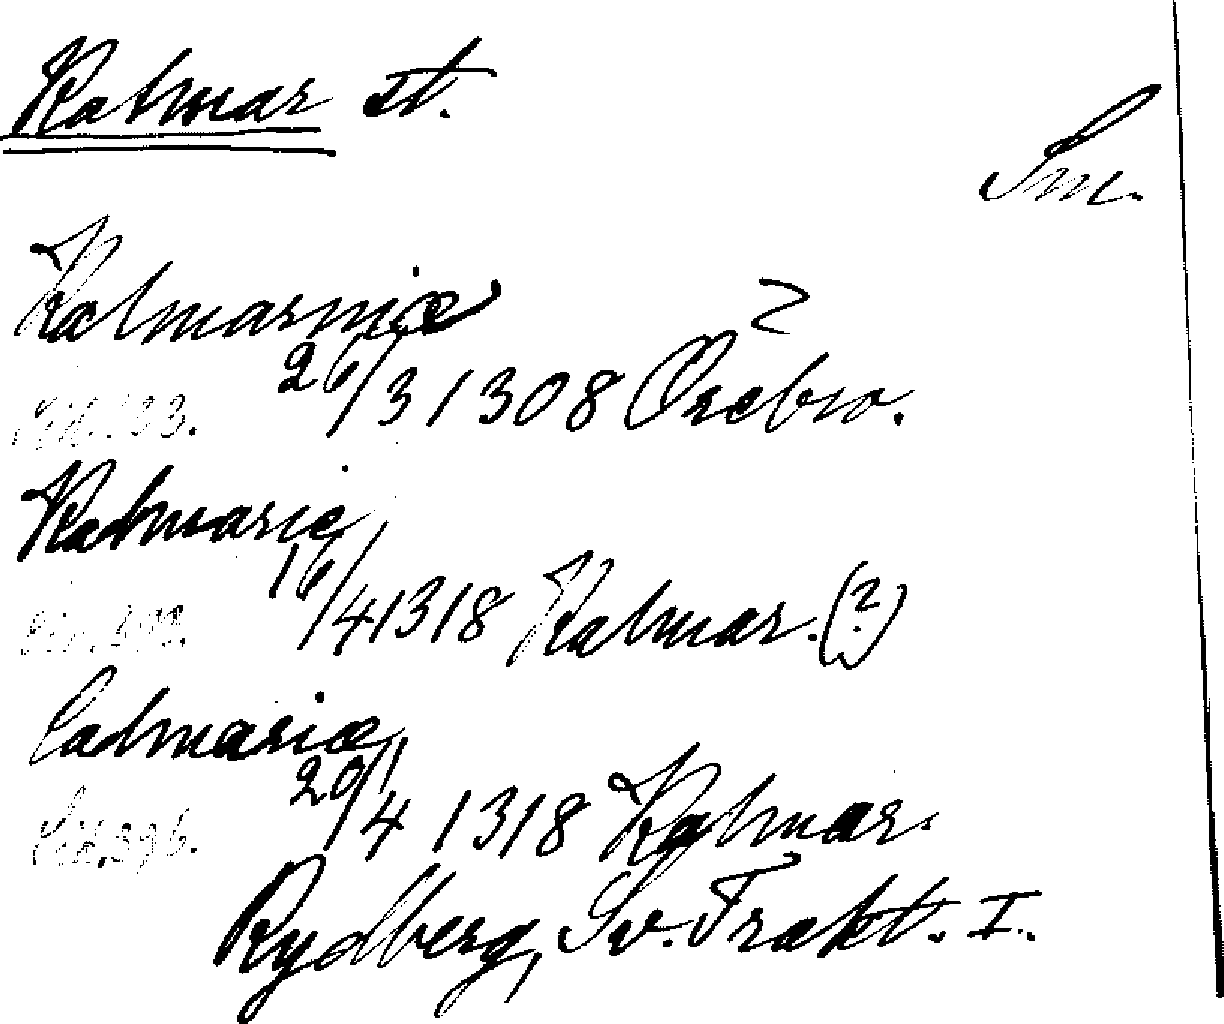 Kalmar st.
Sm.
Kalmarniæ
26/3 1308 Örebro.
Kalmarie
16/4 1318 Kalmar. (?)
Calmariæ
20/4 1318 Kalmar.
Sid. 396.
Rydberg, Sv. Trakt. I.